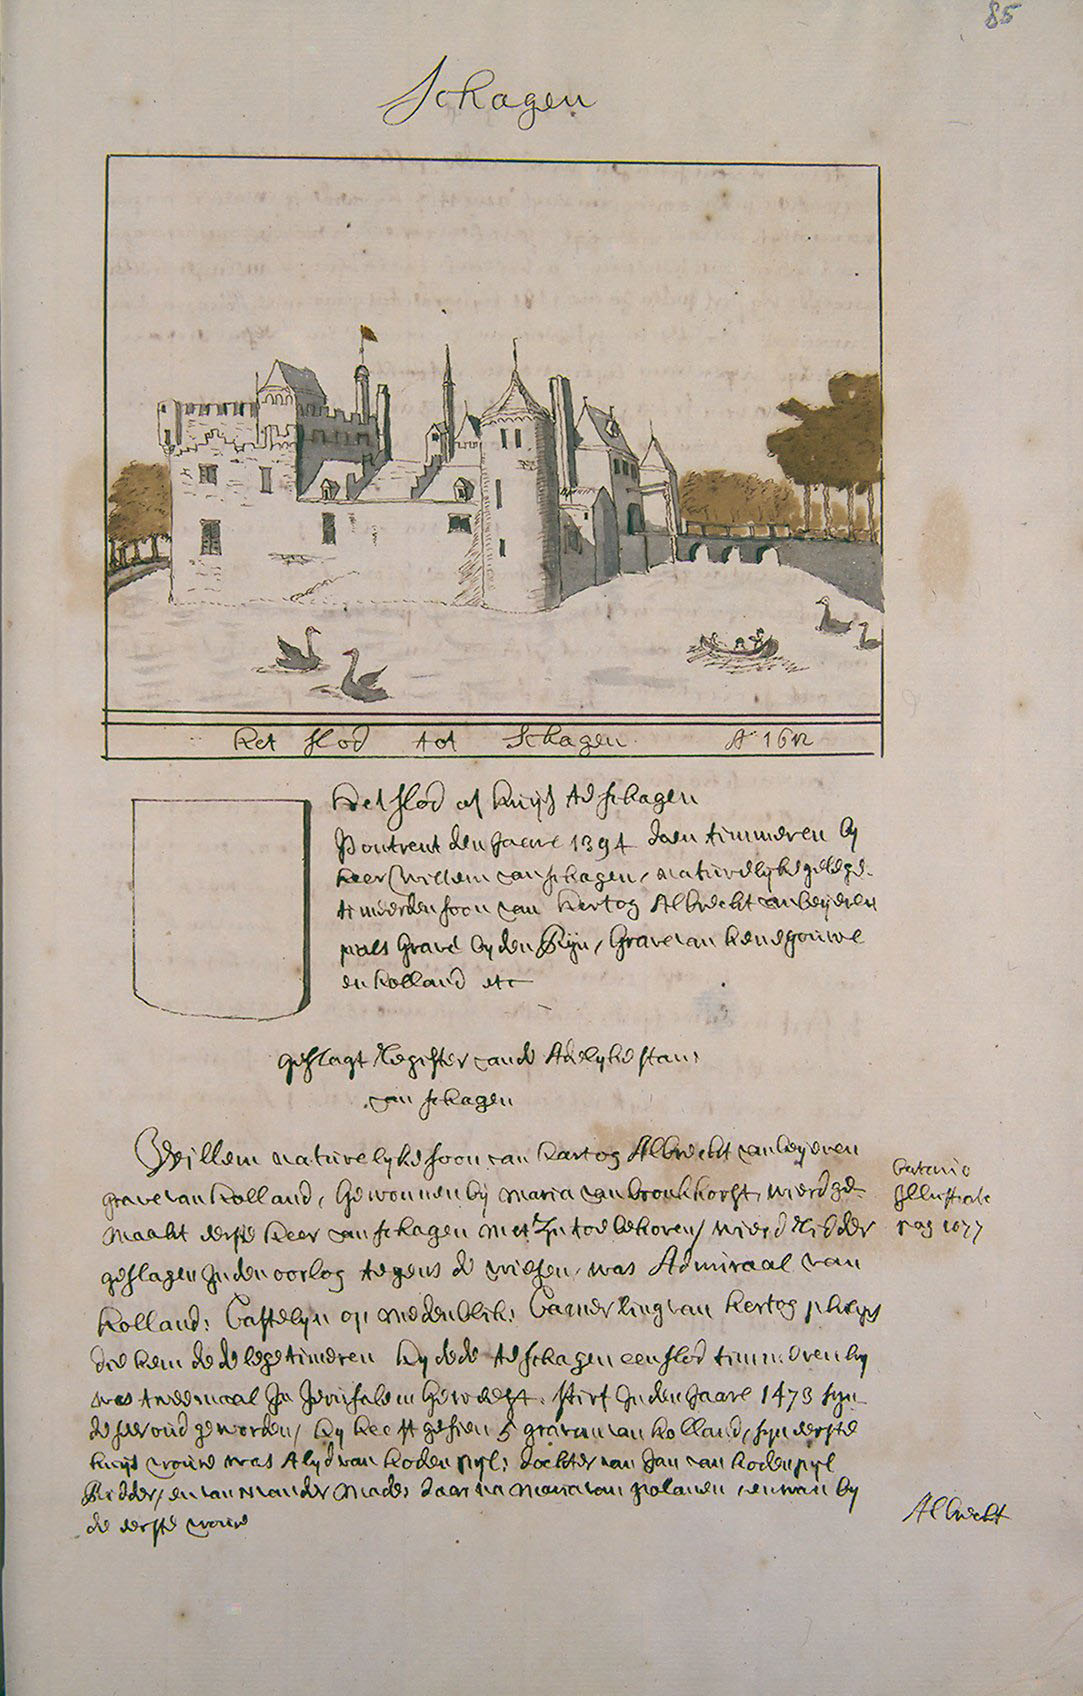 85
Schagen
Het slod tot Schagen. A° 1612
Het slod of huijs te schagen
is ontrent den Jaare 1394 doen timmeren by
heer Willem van schagen, naturelyke gelege-
timeerden soon van Hertog Albrecht van beijeren
pals Grave by den Rijn, Grave van henegouwe
en holland etc
geslagt Register vande Adelyke stam
van schagen
Willem naturelyke soon van hartog Albrecht van beyeren
grave van holland, gewonnen bij maria van bronkhorst, wierd ge-
maakt derste heer van schagen met Zyn toe behoren, wierd Ridder
geslagen Jnden oorlog tegens de vriesen, was Admiraal van
holland: Castelyn op medenblik: Camerling van hertog philips
die hem dede legetimeren hy dede te schagen een slod timmeren hy
was tweemaal Jn Jerusalem geweest. stirf Jnden Jaare 1473 syn-
de seer oud geworden, hy heeft gesien 5 graven van holland, syn eerste
huijs vrouw was Alyd van hodenpyl: dochter van Jan van hodenpyl
Ridder, en van vander made: daar na maria van polanen, en wan by
de eerste vrouw
batavia
Jllustrate
pag 1077
Albrecht